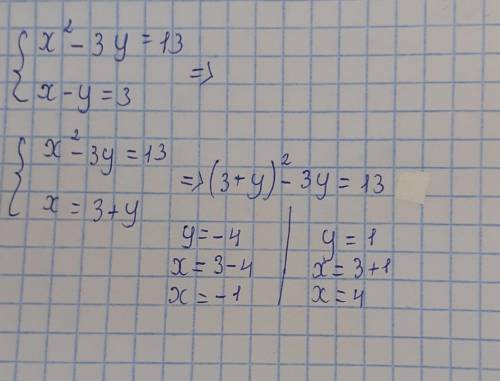 x² - 3y = 13
x - y = 3 =>
x² - 3y = 13
x = 3 + y => (3 + y)² - 3y = 13
y = -4 | y = 1
x = 3 - 4 | x = 3 + 1
x = -1 | x = 4